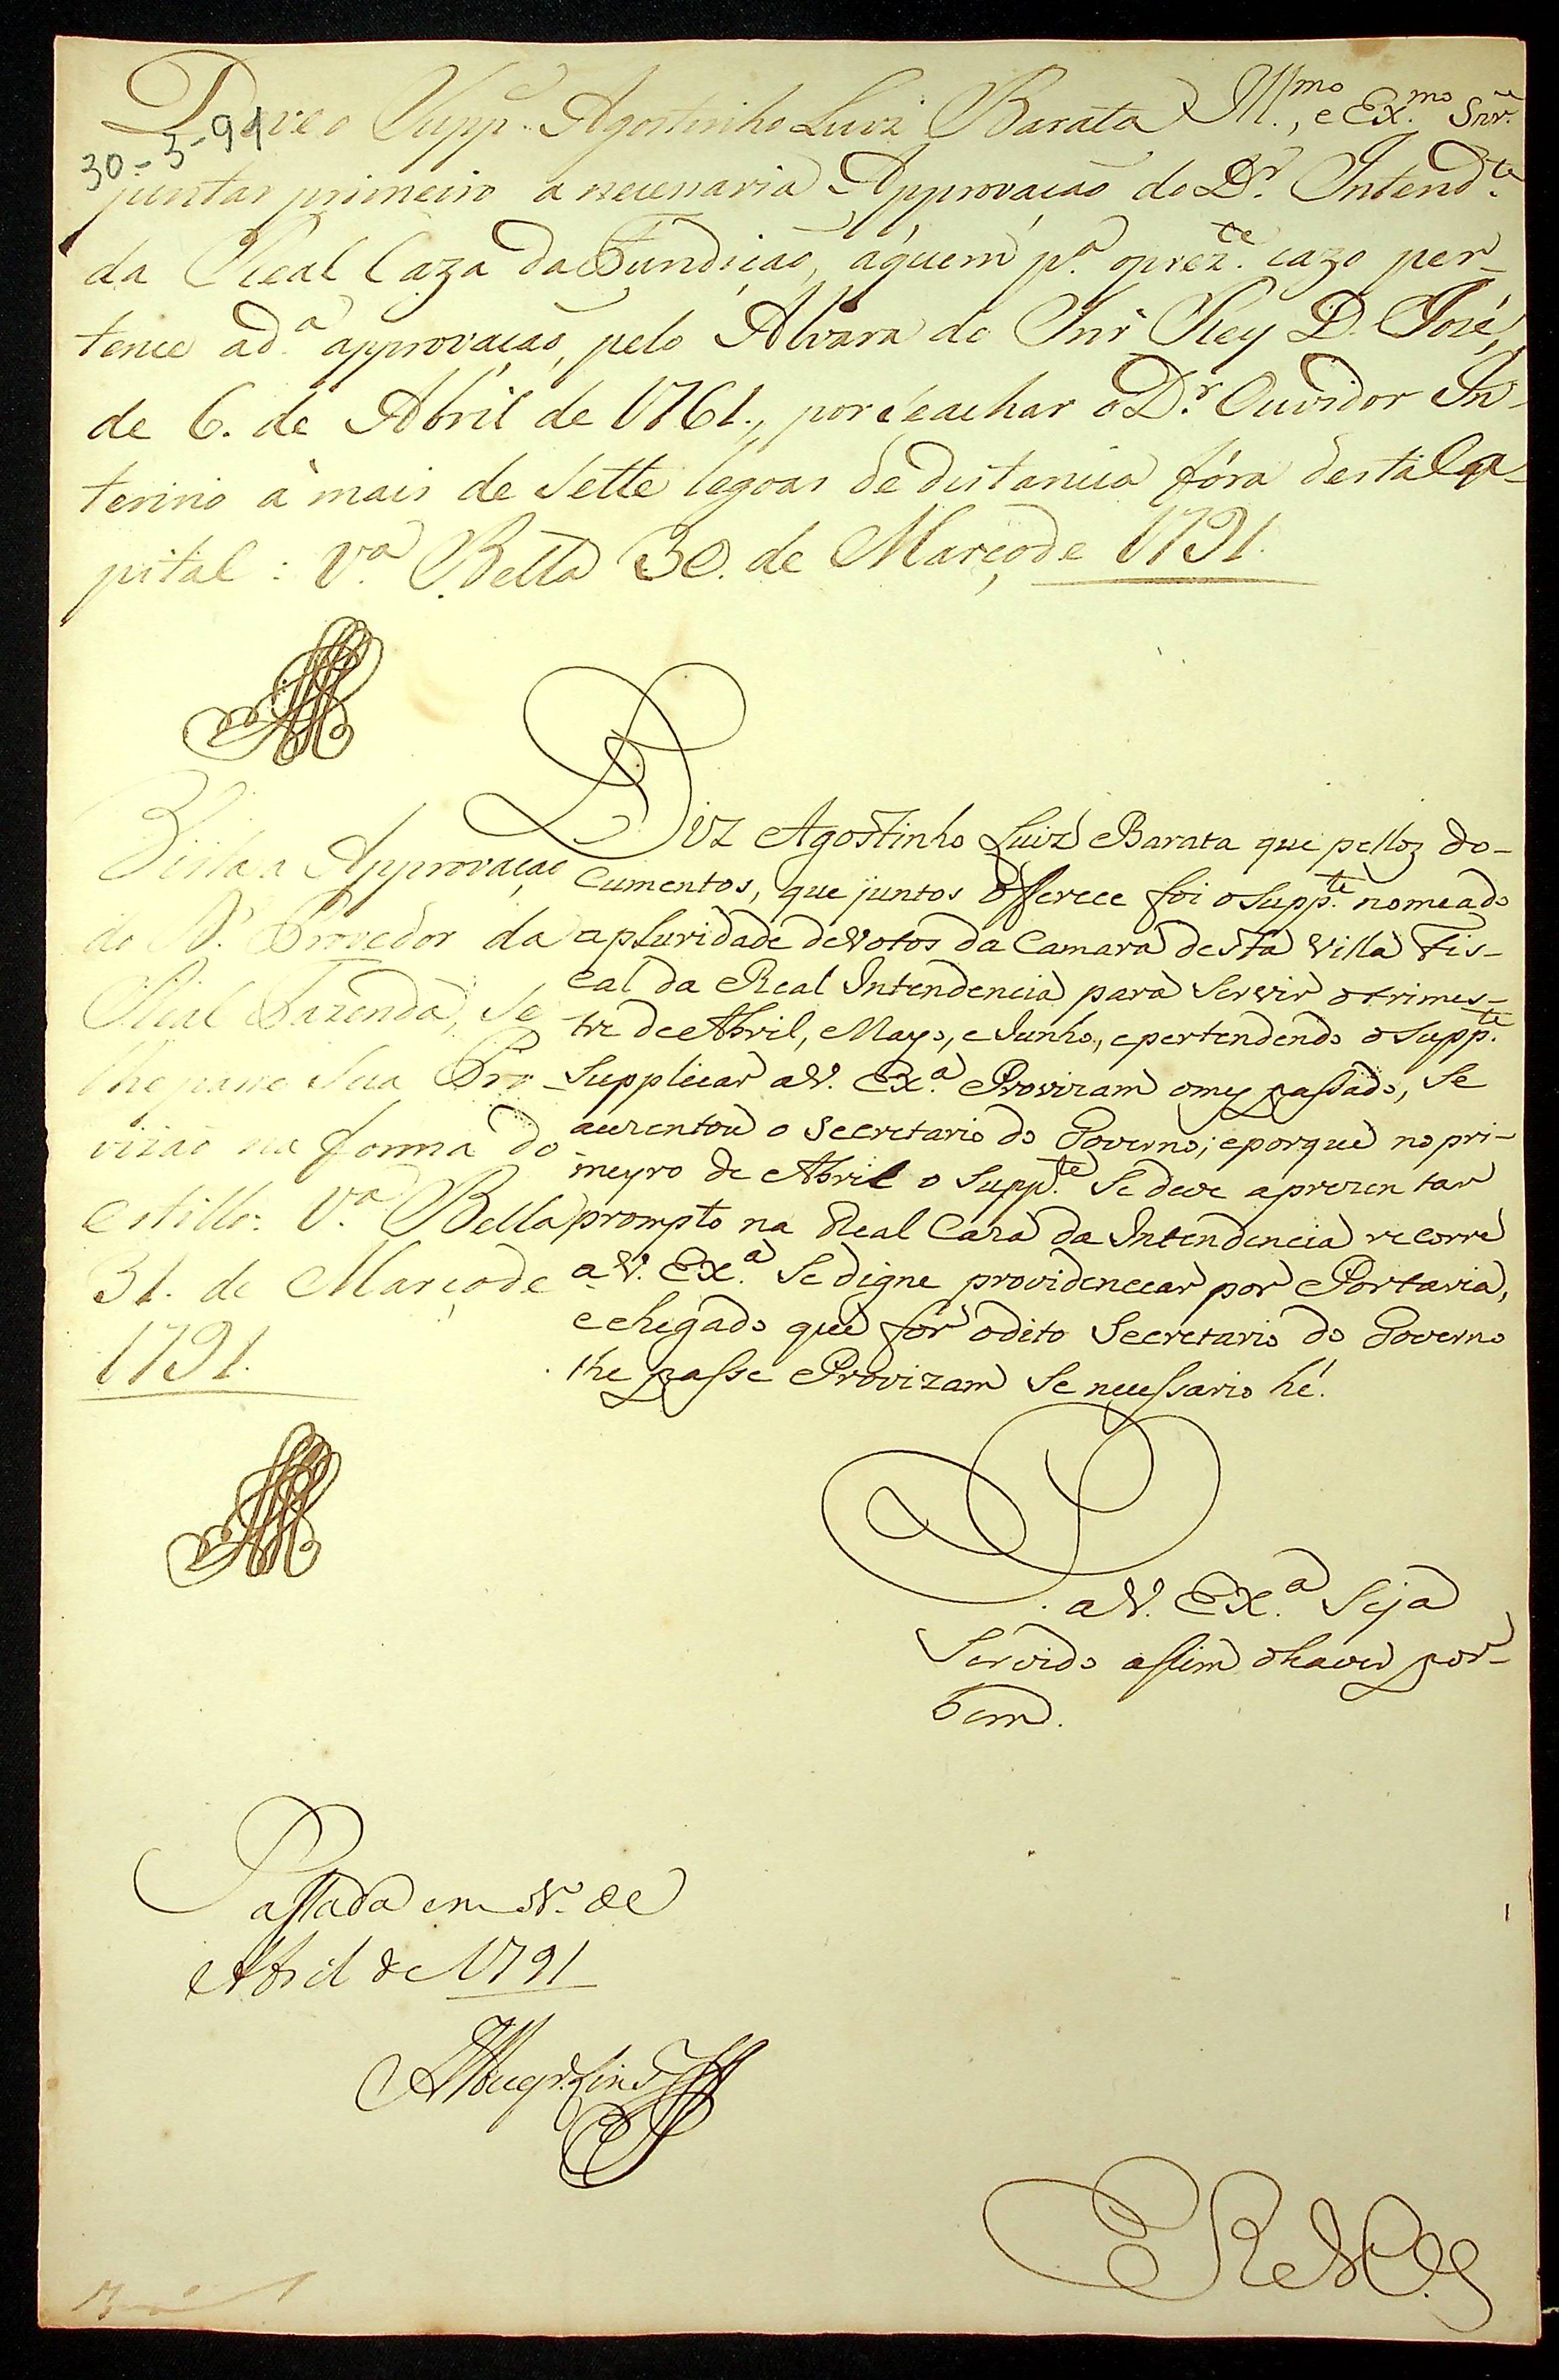 Deve o Supp.e Agostinho Luiz Barata
Ill.mo, e Ex.mo Snr.
30-3-91
juntar primeiro a necessaria Approvação do D.r Intend.te
da Real Caza da Fundição, áquem p.a o prez.te cazo per-
tence a d.a approvação, pelo Alvara do Snr Rey D. José,
de 6. de Abril de 1761., por se achar o D.r Ouvidor In-
terino à mais de Sette legoas de distancia fóra desta Ca-
pital: V.a Bella 30. de Março de 1791.
Diz Agostinho Luiz Barata que pelloz do-
cumentos, que juntos offerece foi o Supp.te nomeado
a pluridade de Votos da Camara desta Villa Fis-
cal da Real Intendencia para Servir o trimes-
tre de Abril, Mayo, e Junho, e pertendendo o Supp.te
Supplicar a V. Ex.a Provizam o mez passado, Se
auzentou o Secretario do Governo; e porque no pri-
meyro de Abril o Supp.te Se deve aprezentar
prompto na Real Caza da Intendencia recorre
a V. Ex.a Se digne providenciar por Portaria,
e chegado que for o dito Secretario do Governo
lhe passe Provizam Se necessario hé.
P. a V. Ex.a Seja
Servido assim o haver por-
bem.
Vista a Approvação
do D.r Provedor da
Real Fazenda, Se
lhe passe Sua Pro-
vizão na forma do
estillo: V.a Bella
31. de Março de
1791.
Passada em N. de
Abril de 1791
E R M.ce